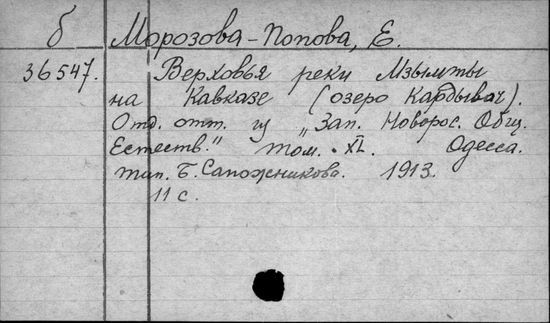 б Морозова-Попова, Е.
36547. Верховья реки Мзымты
на Кавказе (озеро Кардывач).
Отд. отт. из „Зап. Новорос. Общ.
Естеств.“ том. XL. Одесса.
тип. Б. Сапожникова. 1913.
11 с.